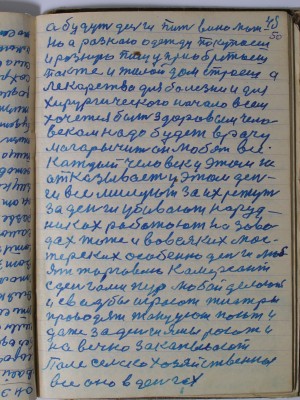 а будут деньги пит вино мож 45
но а разною одежду покупаем 50
и розную пищу приобретаем
также и жилой дом строеш а
лекарства для болезни и для
хирургического начало всем
хочетса быт здоровсем чело
веком надо будет врачу
магарычит он любят все.
Каждый человек у этом не
отказивает у этом ден-
ги все милуют за их режут
за денги убивают на руд-
никах работают на заво-
дах тоже и во всяких мас-
терских особенно денги люб
ят торговлю Камерсант
з денгами пир любой делают
и свадьбы играют театры
проводят танцуют поют и
даже за денги ямы роют и
на вечно закапивают
Поле селско хозяйственное
все оно в денгах